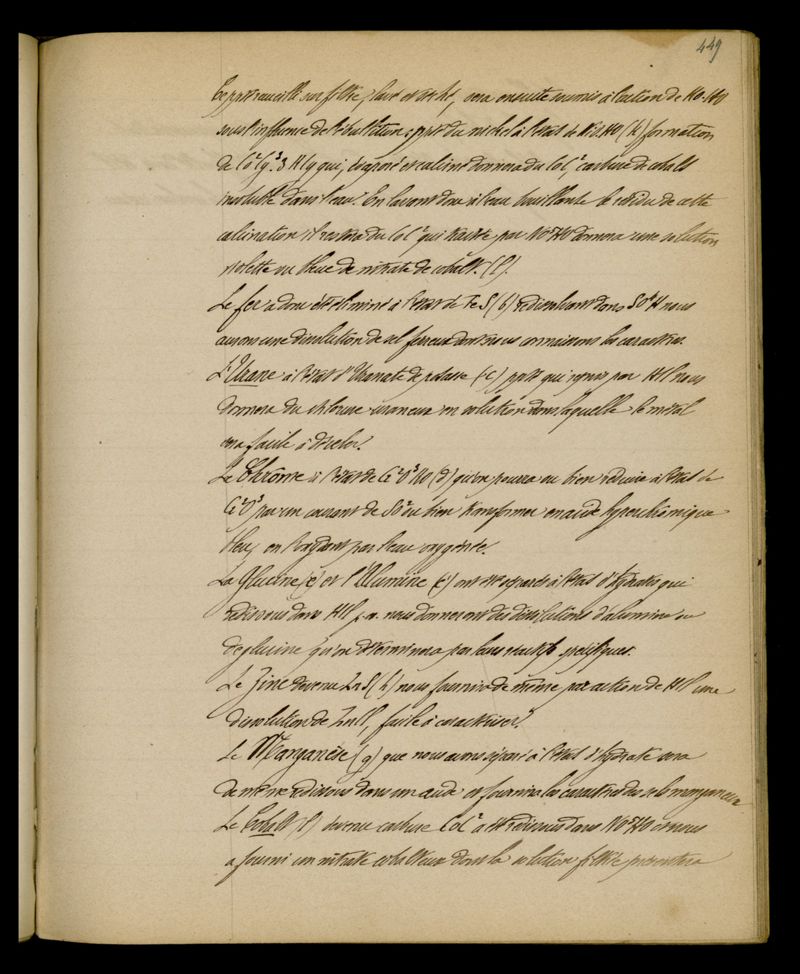 449
Ce ppt recueilli sur filtre, lavé et séché, sera ensuite soumis à l'action de HO
sous l'influence de l'ébullition : ppté du nickel à l'état de NiO,HO (k) formation
de Co²Cy³ 3 HCy qui, évaporé et calciné donnera du CoC² carbure de cobalt
insoluble dans l'eau. En lavant donc à l'eau bouillante le résidu de cette
calcination il restera du CoC² qui traité par NO⁵HO donnera une solution
violette ou bleue de nitrate de cobalt. (l).
Le fer a donc été éliminé à l'état de FeS (b) redissolvant dans SO⁴H nous
aurons une dissolution de sel ferreux dont nous connaissons les caractères.
L'Urane à l'état d'Uranate de potasse (c) ppté qui repris par HCl nous
donnera du chlorure uraneux en solution dans laquelle le métal
sera facile à déceler.
Le Chrôme à l'état de Cr²O³HO (d) qu'on pourra ou bien réduire à l'état de
Cr²O³ par un courant de SO² ou bien transformer en acide hyperchromique
bleu, en l'oxydant par l'eau oxygénée.
La Glucine (e) et l'Alumine (f) ont été séparées à l'état d'hydrates qui
redissous dans HCl nous donneront des dissolutions d'alumine ou
de glucine qu'on déterminera par leurs réactifs spécifiques.
Le Zinc devenu ZnS (h) nous fournira de même par action de HCl une
dissolution de ZnCl, facile à caractériser.
Le Manganèse (g) que nous avons séparé à l'état d'hydrate sera
de même redissous dans un acide et fournira les caractères des sels manganeux
Le Cobalt (l) devenu carbure CoC² a été redissous dans NO⁵HO et nous
a fourni un nitrate cobalteux dont la solution filtrée présentera